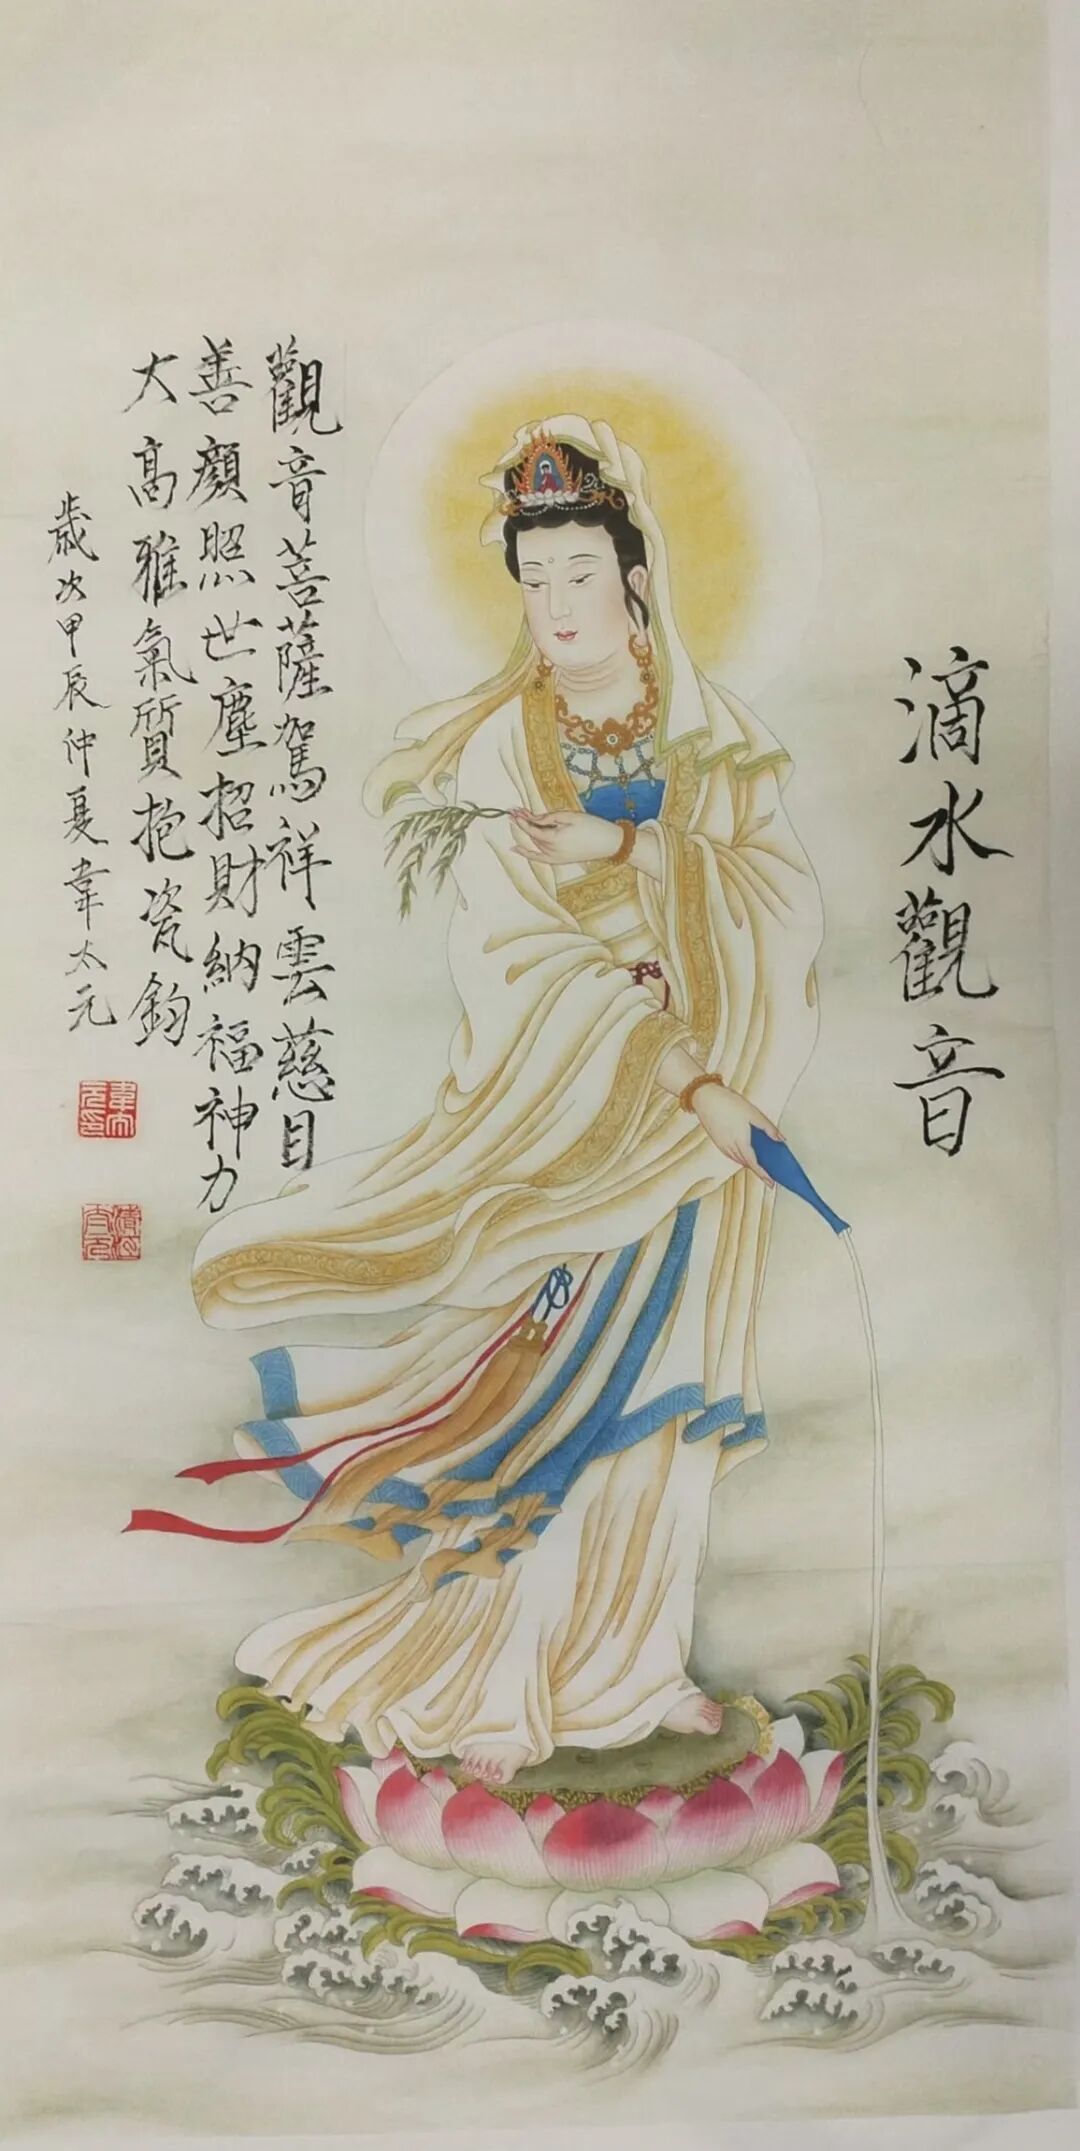 滴水觀音
觀音菩薩駕祥雲慈目
善顏照世塵招財納福神力
大高雅氣質抱瓷鈞
歲次甲辰仲夏韋太元
韋太元印